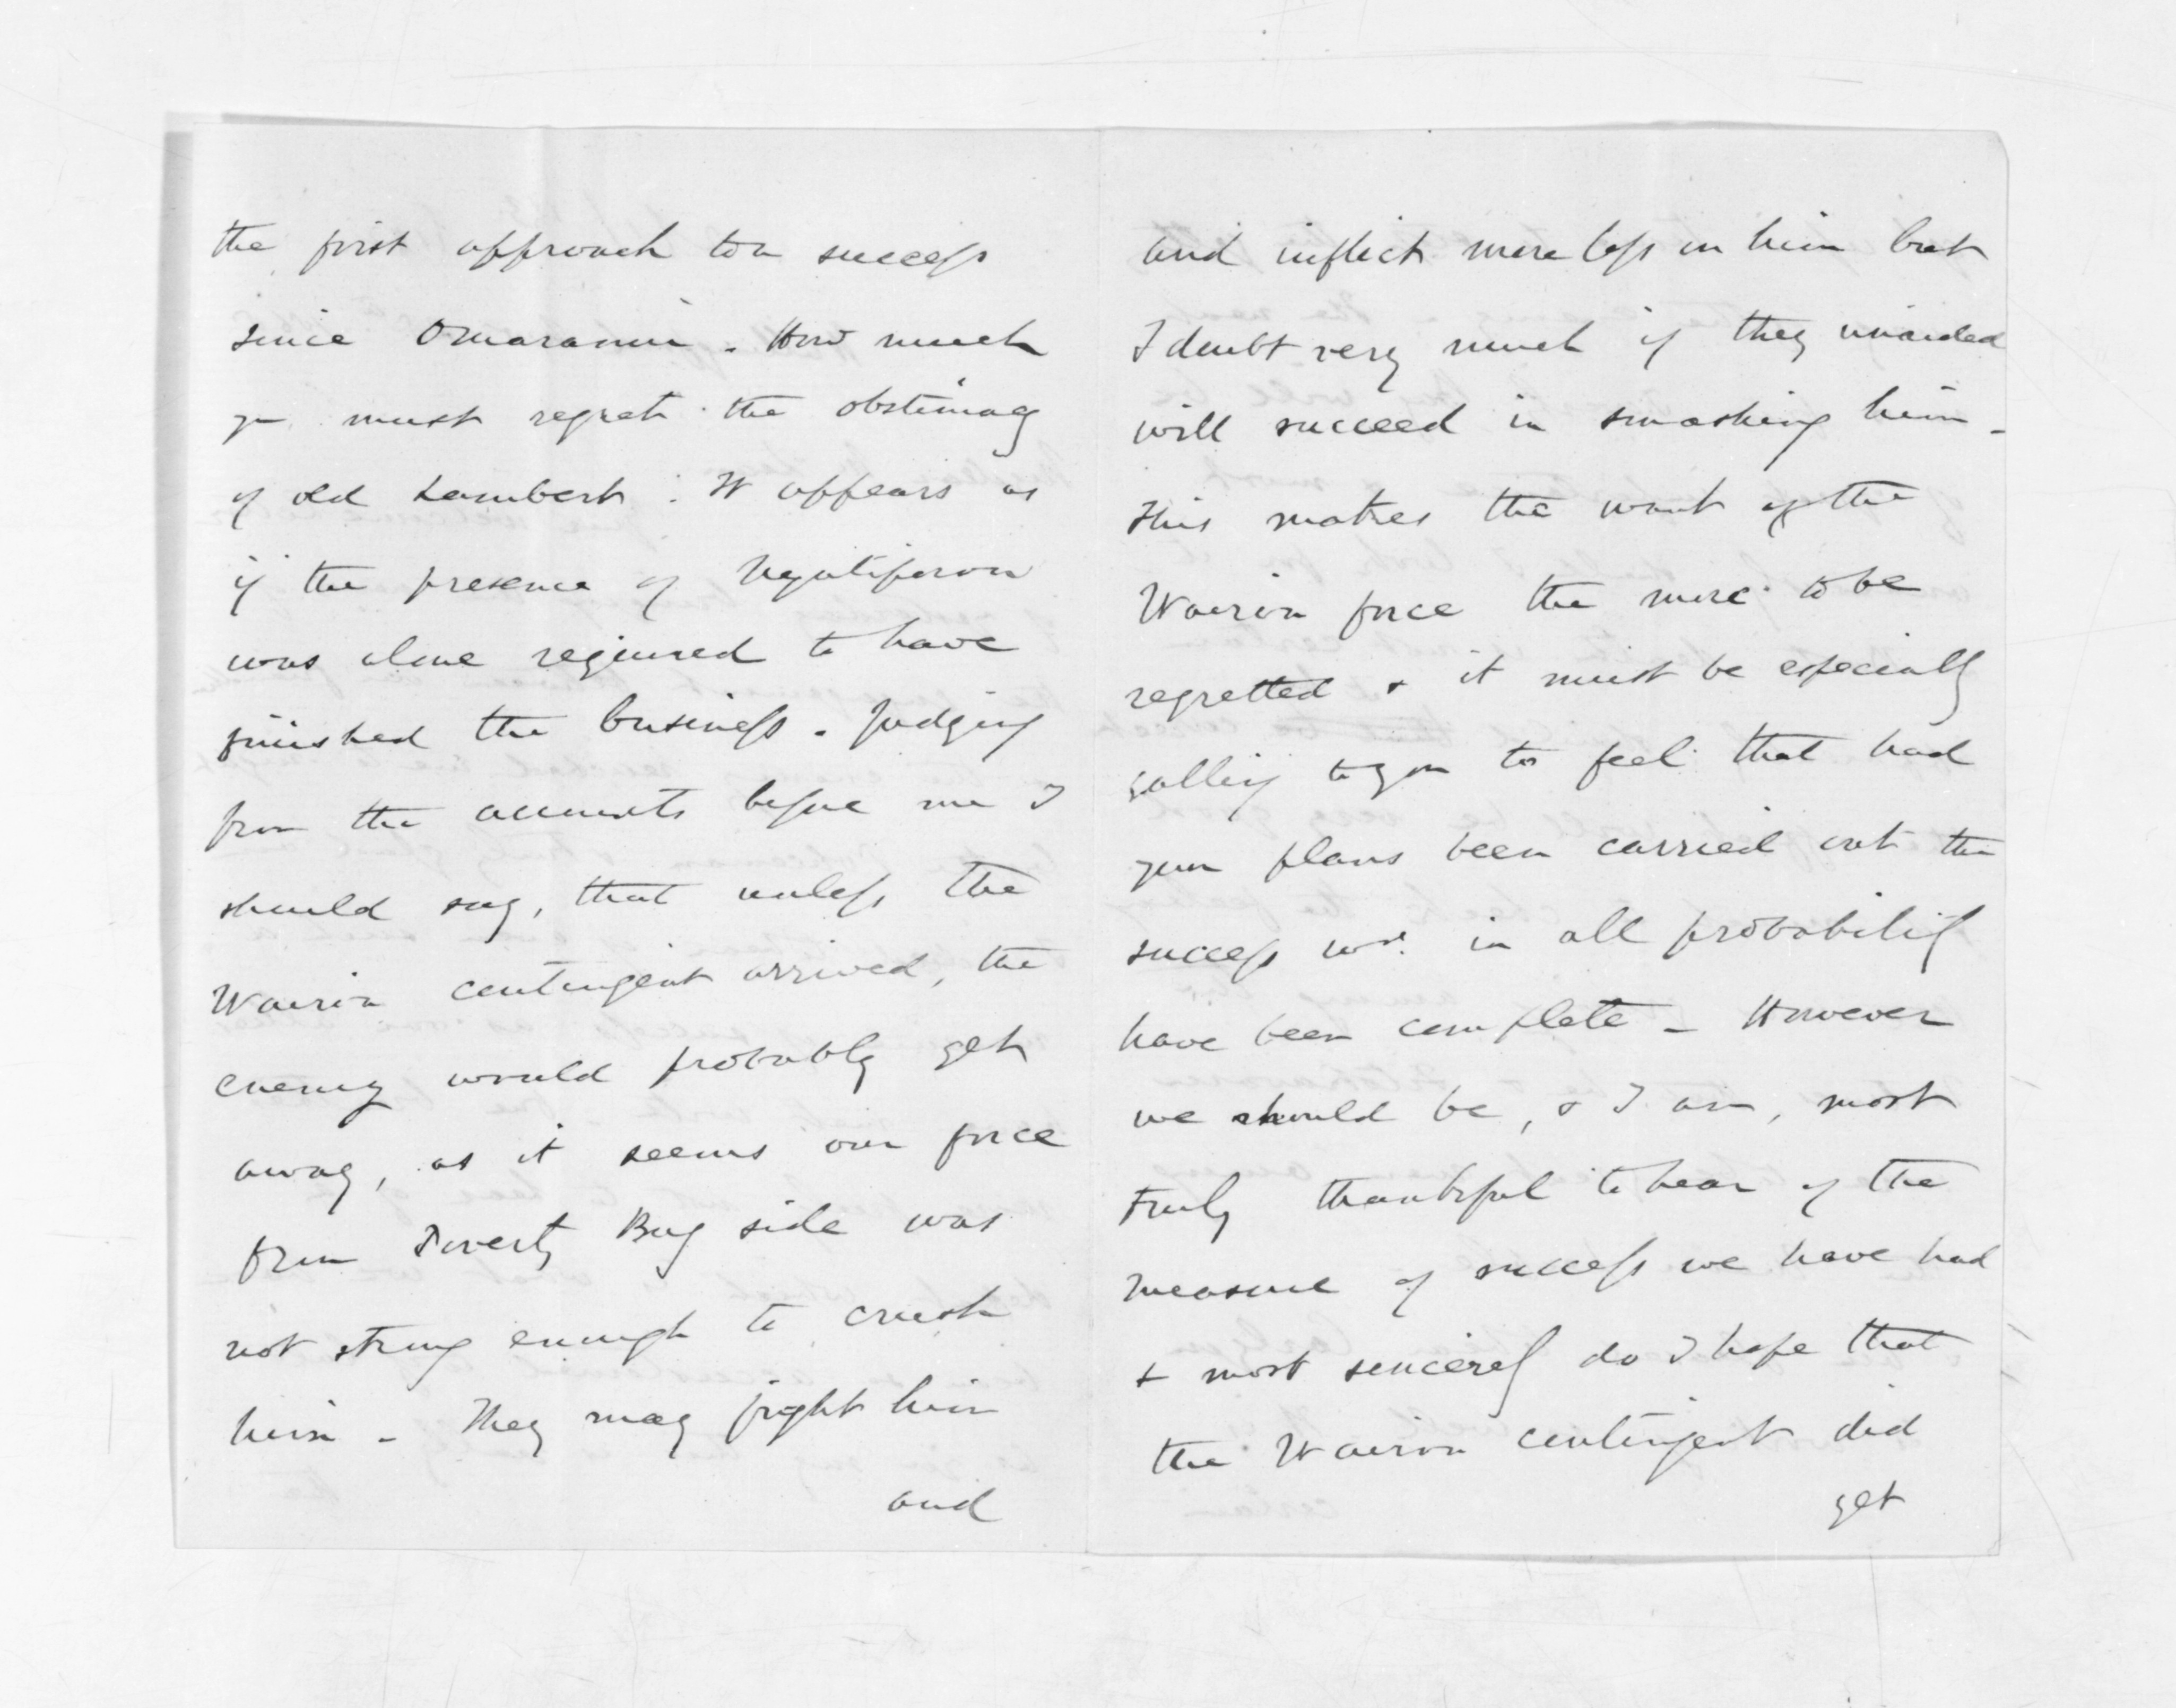 the first approach to a success
since Omaranui. How much
you must regret the obstinacy
of old Lambert. It appears as
if the presence of Ngatiporou
was alone required to have
finished the business. Judging
from the accounts before me I
should say, that unless the
Wairoa contingent arrived, the
enemy would probably get
away, as it seems our force
from Poverty Bay side was
not strong enough to crush
him - They may fight him
and
and inflict more loss on him but
I doubt very much if they unaided
will succeed in smashing him -
This makes the want of the
Wairoa force the more to be
regretted & it must be especially
galling to you to feel that had
your plans been carried out the
success wd. in all probability
have been complete - However
we should be, & I am, most
truly thankful to hear of the
measure of success we have had
& most sincerely do I hope that
the Wairoa contingent did
get